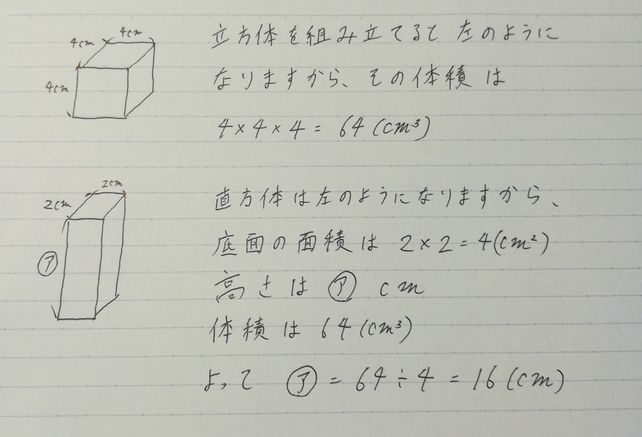 4cm 4cm
4cm
立方体を組み立てると左のように
なりますから、その体積は
4×4×4=64(cm³)
2cm 2cm
㋐
直方体は左のようになりますから、
底面の面積は 2×2=4(cm²)
高さは ㋐ cm
体積は 64(cm³)
よって ㋐=64÷4=16(cm)